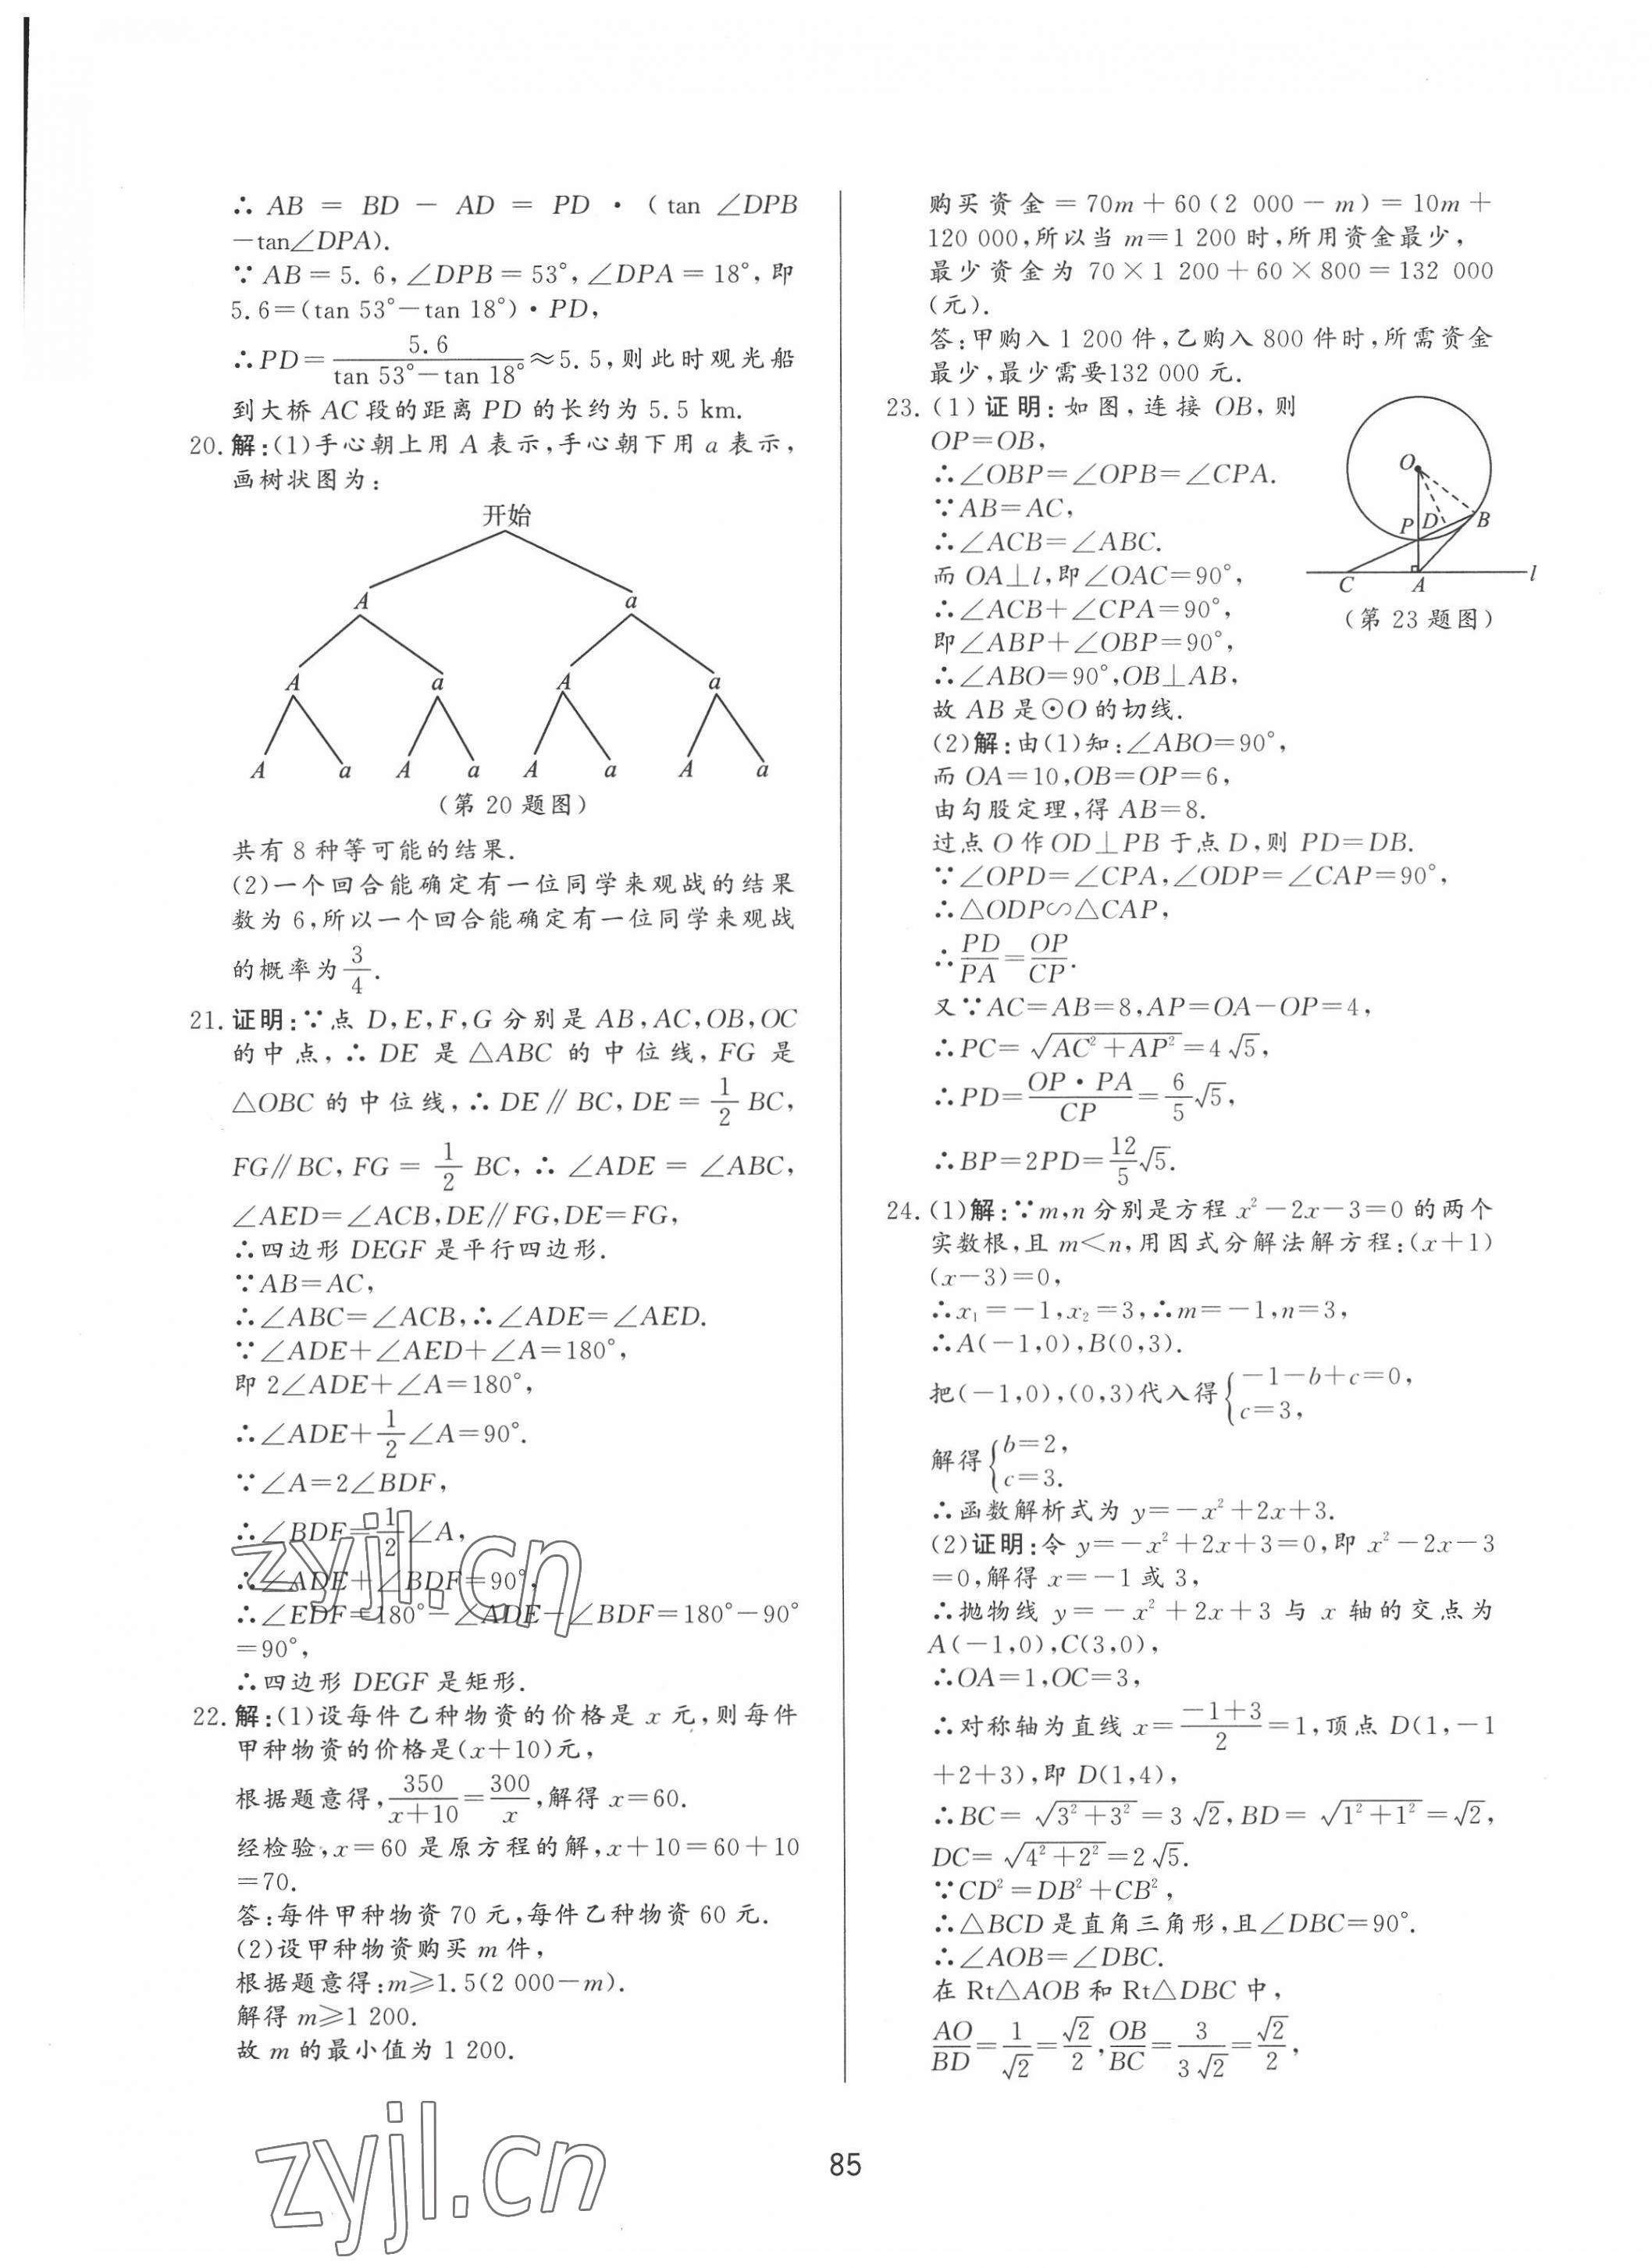 ∴ AB = BD － AD = PD · (tan ∠DPB
－tan∠DPA).
∵ AB＝5.6,∠DPB＝53°,∠DPA＝18°,即
5.6＝(tan 53°－tan 18°)·PD,
∴PD＝5.6/(tan 53°－tan 18°)≈5.5,则此时观光船
到大桥 AC 段的距离 PD 的长约为 5.5 km.
20.解:(1)手心朝上用 A 表示,手心朝下用 a 表示,
画树状图为:
开始
A a
A a A a
A a A a A a A a
(第 20 题图)
共有 8 种等可能的结果.
(2)一个回合能确定有一位同学来观战的结果
数为 6,所以一个回合能确定有一位同学来观战
的概率为 3/4.
21.证明:∵点 D,E,F,G 分别是 AB,AC,OB,OC
的中点,∴ DE 是 △ABC 的中位线,FG 是
△OBC 的中位线,∴DE∥BC,DE＝1/2 BC,
FG∥BC,FG＝1/2 BC,∴∠ADE＝∠ABC,
∠AED＝∠ACB,DE∥FG,DE＝FG,
∴四边形 DEGF 是平行四边形.
∵AB＝AC,
∴∠ABC＝∠ACB,∴∠ADE＝∠AED.
∵∠ADE＋∠AED＋∠A＝180°,
即 2∠ADE＋∠A＝180°,
∴∠ADE＋1/2∠A＝90°.
∵∠A＝2∠BDF,
∴∠BDF＝1/2∠A,
∴∠ADE＋∠BDF＝90°,
∴∠EDF＝180°－∠ADE－∠BDF＝180°－90°
＝90°,
∴四边形 DEGF 是矩形.
22.解:(1)设每件乙种物资的价格是 x 元,则每件
甲种物资的价格是(x＋10)元,
根据题意得,350/(x＋10)＝300/x,解得 x＝60.
经检验,x＝60 是原方程的解,x＋10＝60＋10
＝70.
答:每件甲种物资 70 元,每件乙种物资 60 元.
(2)设甲种物资购买 m 件,
根据题意得:m≥1.5(2 000－m).
解得 m≥1 200.
故 m 的最小值为 1 200.
购买资金＝70m＋60(2 000－m)＝10m＋
120 000,所以当 m＝1 200 时,所用资金最少,
最少资金为 70×1 200＋60×800＝132 000
(元).
答:甲购入 1 200 件,乙购入 800 件时,所需资金
最少,最少需要132 000 元.
23.(1)证明:如图,连接 OB,则
OP＝OB,
∴∠OBP＝∠OPB＝∠CPA.
∵AB＝AC,
∴∠ACB＝∠ABC.
而 OA⊥l,即∠OAC＝90°,
∴∠ACB＋∠CPA＝90°,
即∠ABP＋∠OBP＝90°,
∴∠ABO＝90°,OB⊥AB,
故 AB 是⊙O 的切线.
O
P D B
C A l
(第 23 题图)
(2)解:由(1)知:∠ABO＝90°,
而 OA＝10,OB＝OP＝6,
由勾股定理,得 AB＝8.
过点 O 作 OD⊥PB 于点 D,则 PD＝DB.
∵∠OPD＝∠CPA,∠ODP＝∠CAP＝90°,
∴△ODP∽△CAP,
∴PD/PA＝OP/CP.
又∵AC＝AB＝8,AP＝OA－OP＝4,
∴PC＝√(AC²＋AP²)＝4√5,
∴PD＝OP·PA/CP＝6/5√5,
∴BP＝2PD＝12/5√5.
24.(1)解:∵m,n 分别是方程 x²－2x－3＝0 的两个
实数根,且 m＜n,用因式分解法解方程:(x＋1)
(x－3)＝0,
∴x₁＝－1,x₂＝3,∴m＝－1,n＝3,
∴A(－1,0),B(0,3).
把(－1,0),(0,3)代入得{－1－b＋c＝0,
c＝3,
解得{b＝2,
c＝3.
∴函数解析式为 y＝－x²＋2x＋3.
(2)证明:令 y＝－x²＋2x＋3＝0,即 x²－2x－3
＝0,解得 x＝－1 或 3,
∴抛物线 y＝－x²＋2x＋3 与 x 轴的交点为
A(－1,0),C(3,0),
∴OA＝1,OC＝3,
∴对称轴为直线 x＝(－1＋3)/2＝1,顶点 D(1,－1
＋2＋3),即 D(1,4),
∴BC＝√(3²＋3²)＝3√2,BD＝√(1²＋1²)＝√2,
DC＝√(4²＋2²)＝2√5.
∵CD²＝DB²＋CB²,
∴△BCD 是直角三角形,且∠DBC＝90°.
∴∠AOB＝∠DBC.
在 Rt△AOB 和 Rt△DBC 中,
AO/BD＝1/√2＝√2/2,OB/BC＝3/3√2＝√2/2,
85
zyjl.cn
zyjl.cn